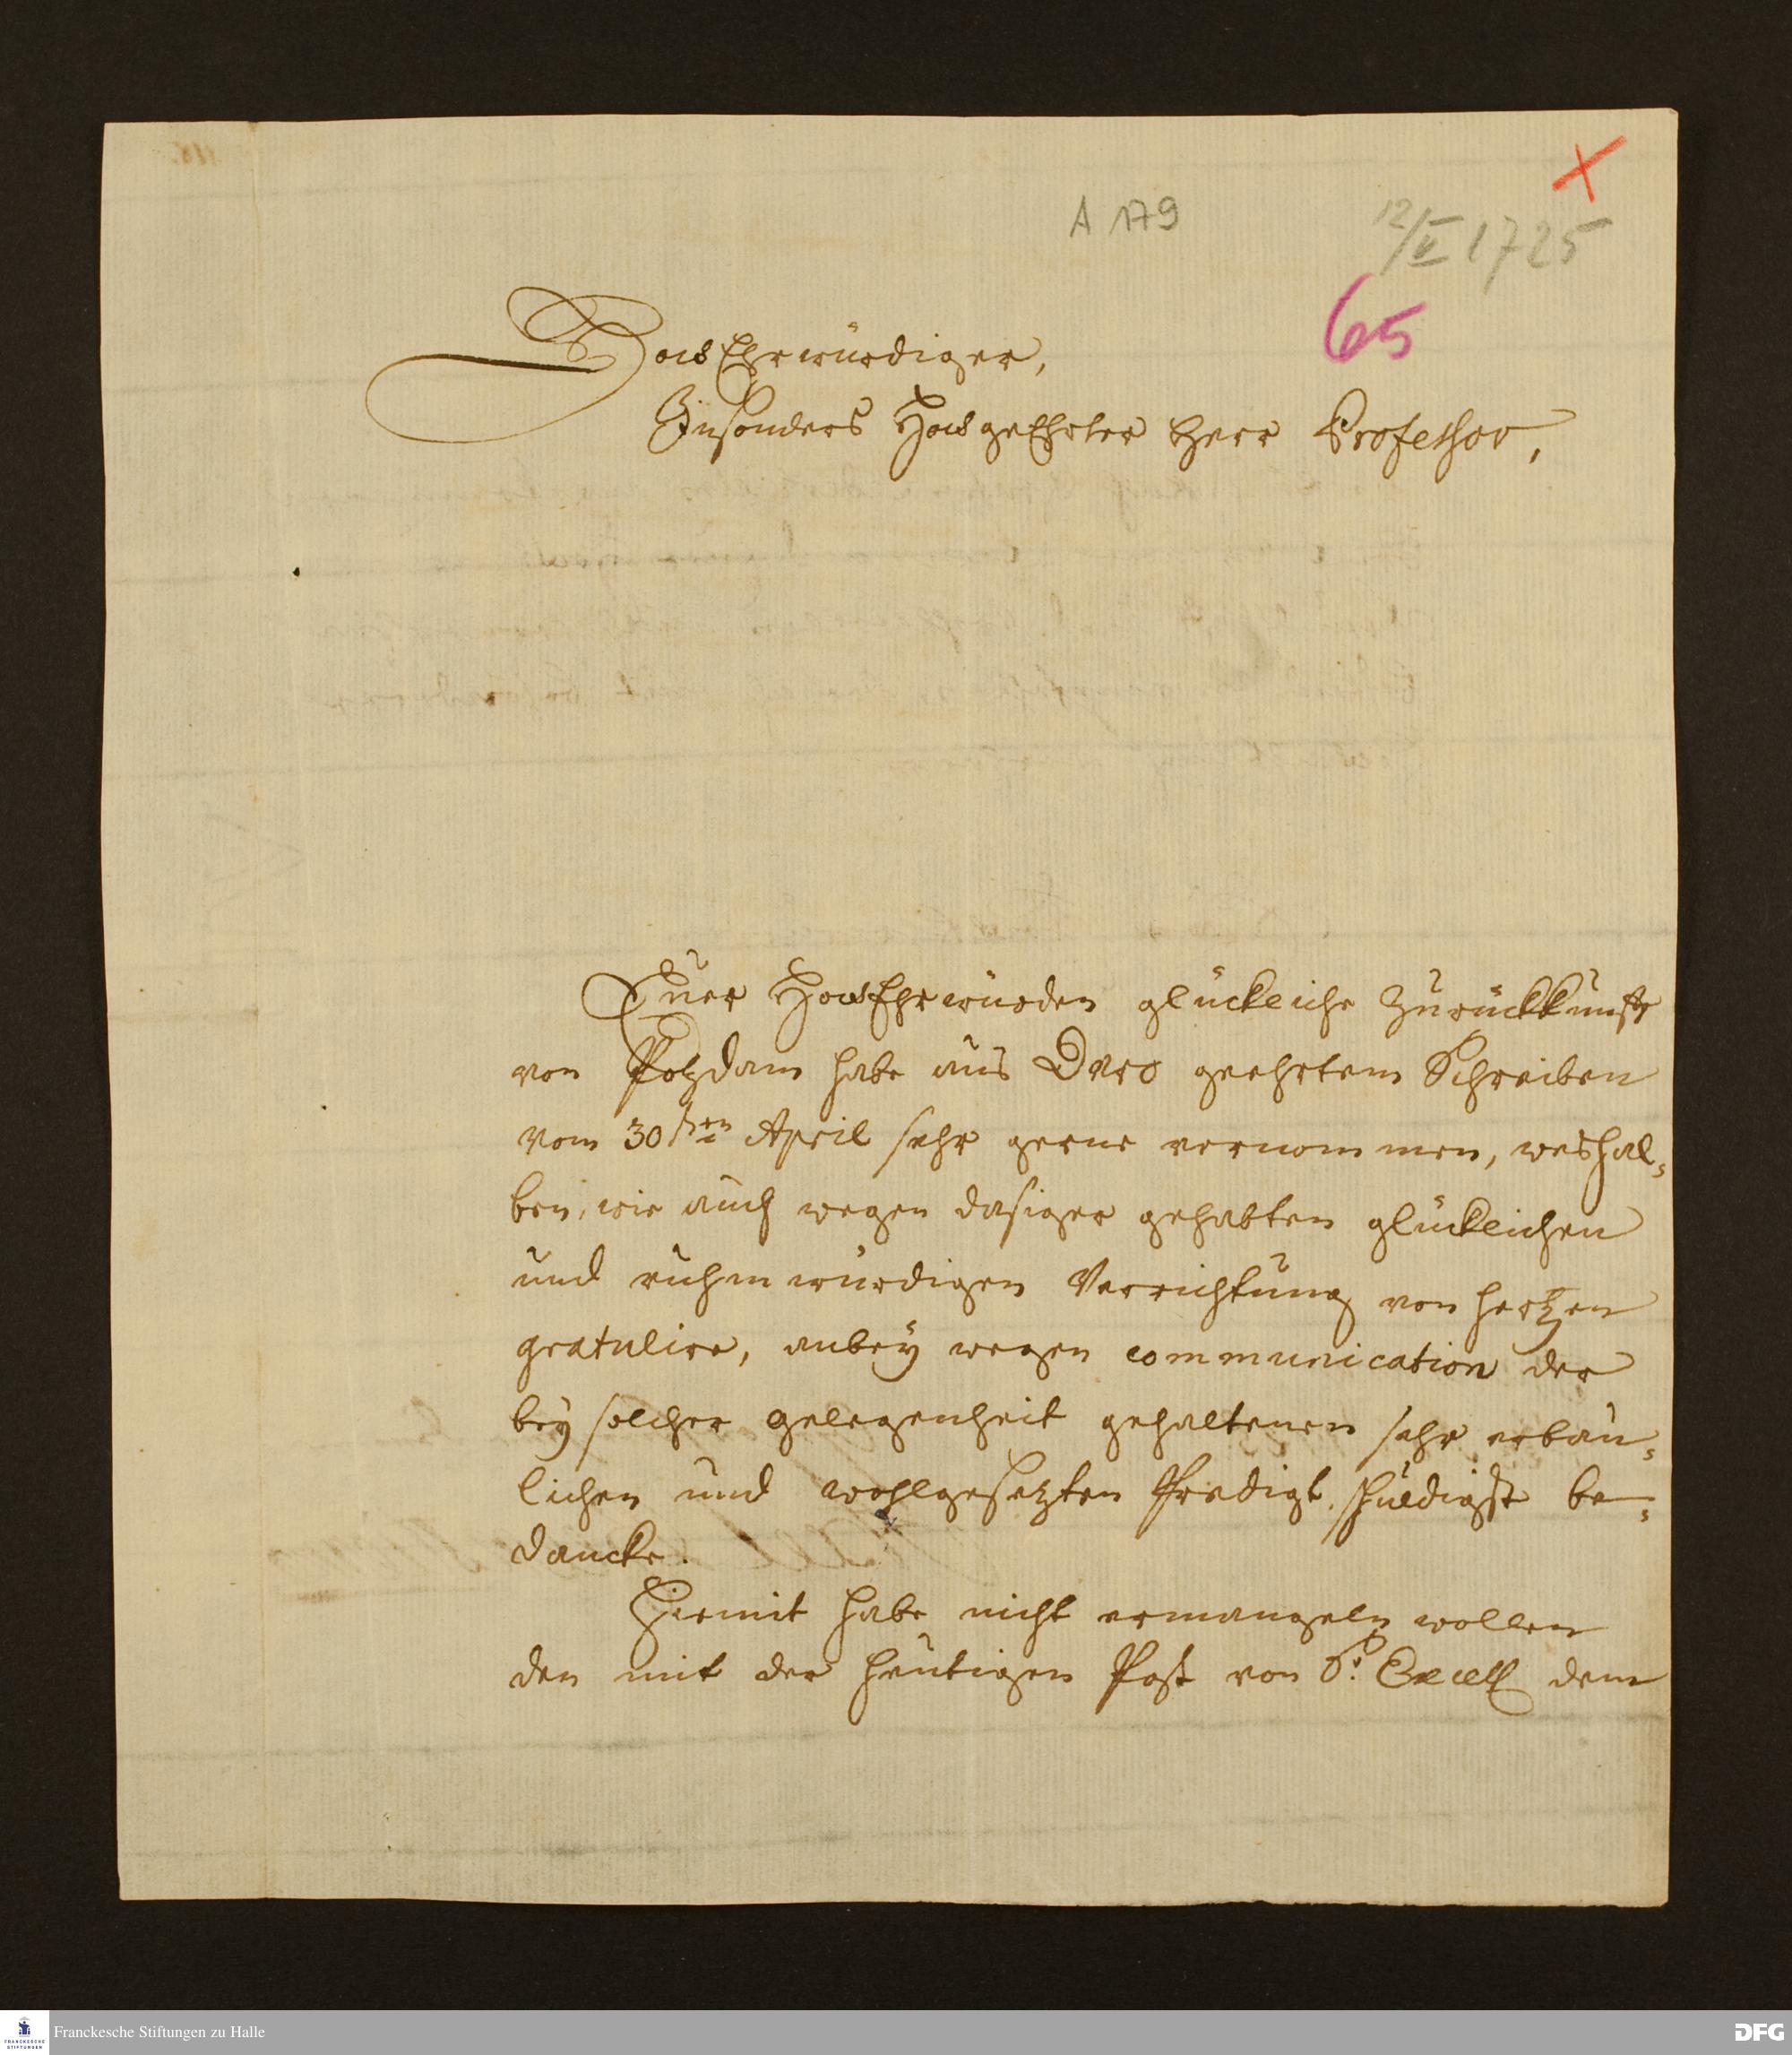 A 179
12/V 1725
65
HochEhrwürdiger,
Insonders HochgeEhrter Herr Professor,
Euer HochEhrwürden glückliche Zurückkunft
von Potzdam habe aus Dero geehrtem Schreiben
vom 30sten April sehr gerne vernommen, weshal-
ben, wie auch wegen dasiger gehabten glücklichen
und ruhmwürdigen Verrichtung von hertzen
gratulire, anbey wegen communication der
bey solcher gelegenheit gehaltenen sehr erbau-
lichen und wohlgesetzten Predigt schuldigst be-
dancke.
Hiemit habe nicht ermangeln wollen
den mit der heutigen Post von Sr. Excell dem
Franckesche Stiftungen zu Halle
FRANCKESCHE
STIFTUNGEN
DFG